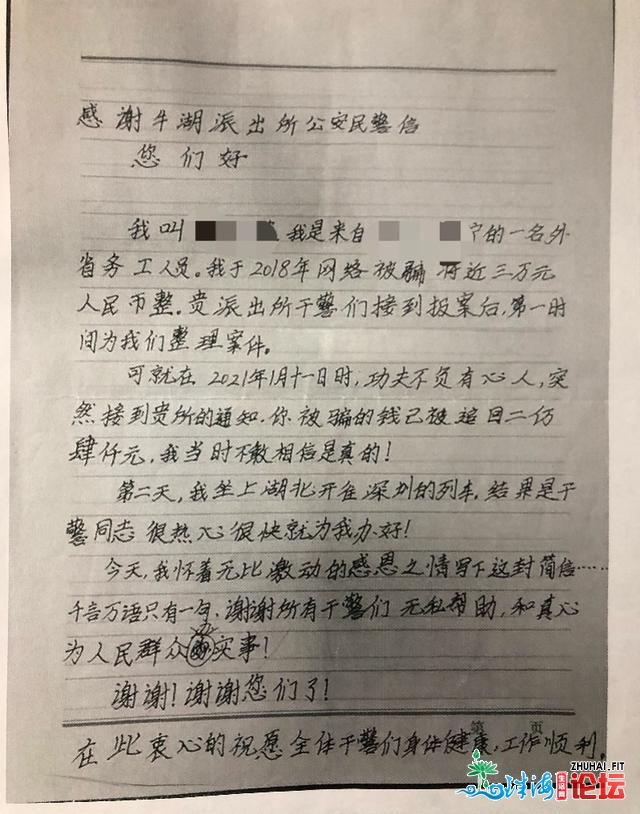 感谢牛湖派出所公安民警信
您们好
我叫 我是来自 宁的一名外
省务工人员。我于2018年网络被骗将近三万元
人民币整。贵派出所干警们接到报案后,第一时
间为我们整理案件。
可就在2021年1月十一日时,功夫不负有心人,突
然接到贵所的通知.你被骗的钱已被追回二仟
肆仟元,我当时不敢相信是真的!
第二天,我坐上湖北开往深圳的列车.结果是干
警同志很热心很快就为我办好!
今天,我怀着无比激动的感恩之情写下这封简信……
千言万语只有一句.谢谢所有干警们无私帮助,和真心
为人民群众办实事!
谢谢!谢谢您们了!
第 页
在此衷心的祝愿全体干警们身体健康,工作顺利.
ZHUHAI.FIT
珠海生活圈论坛